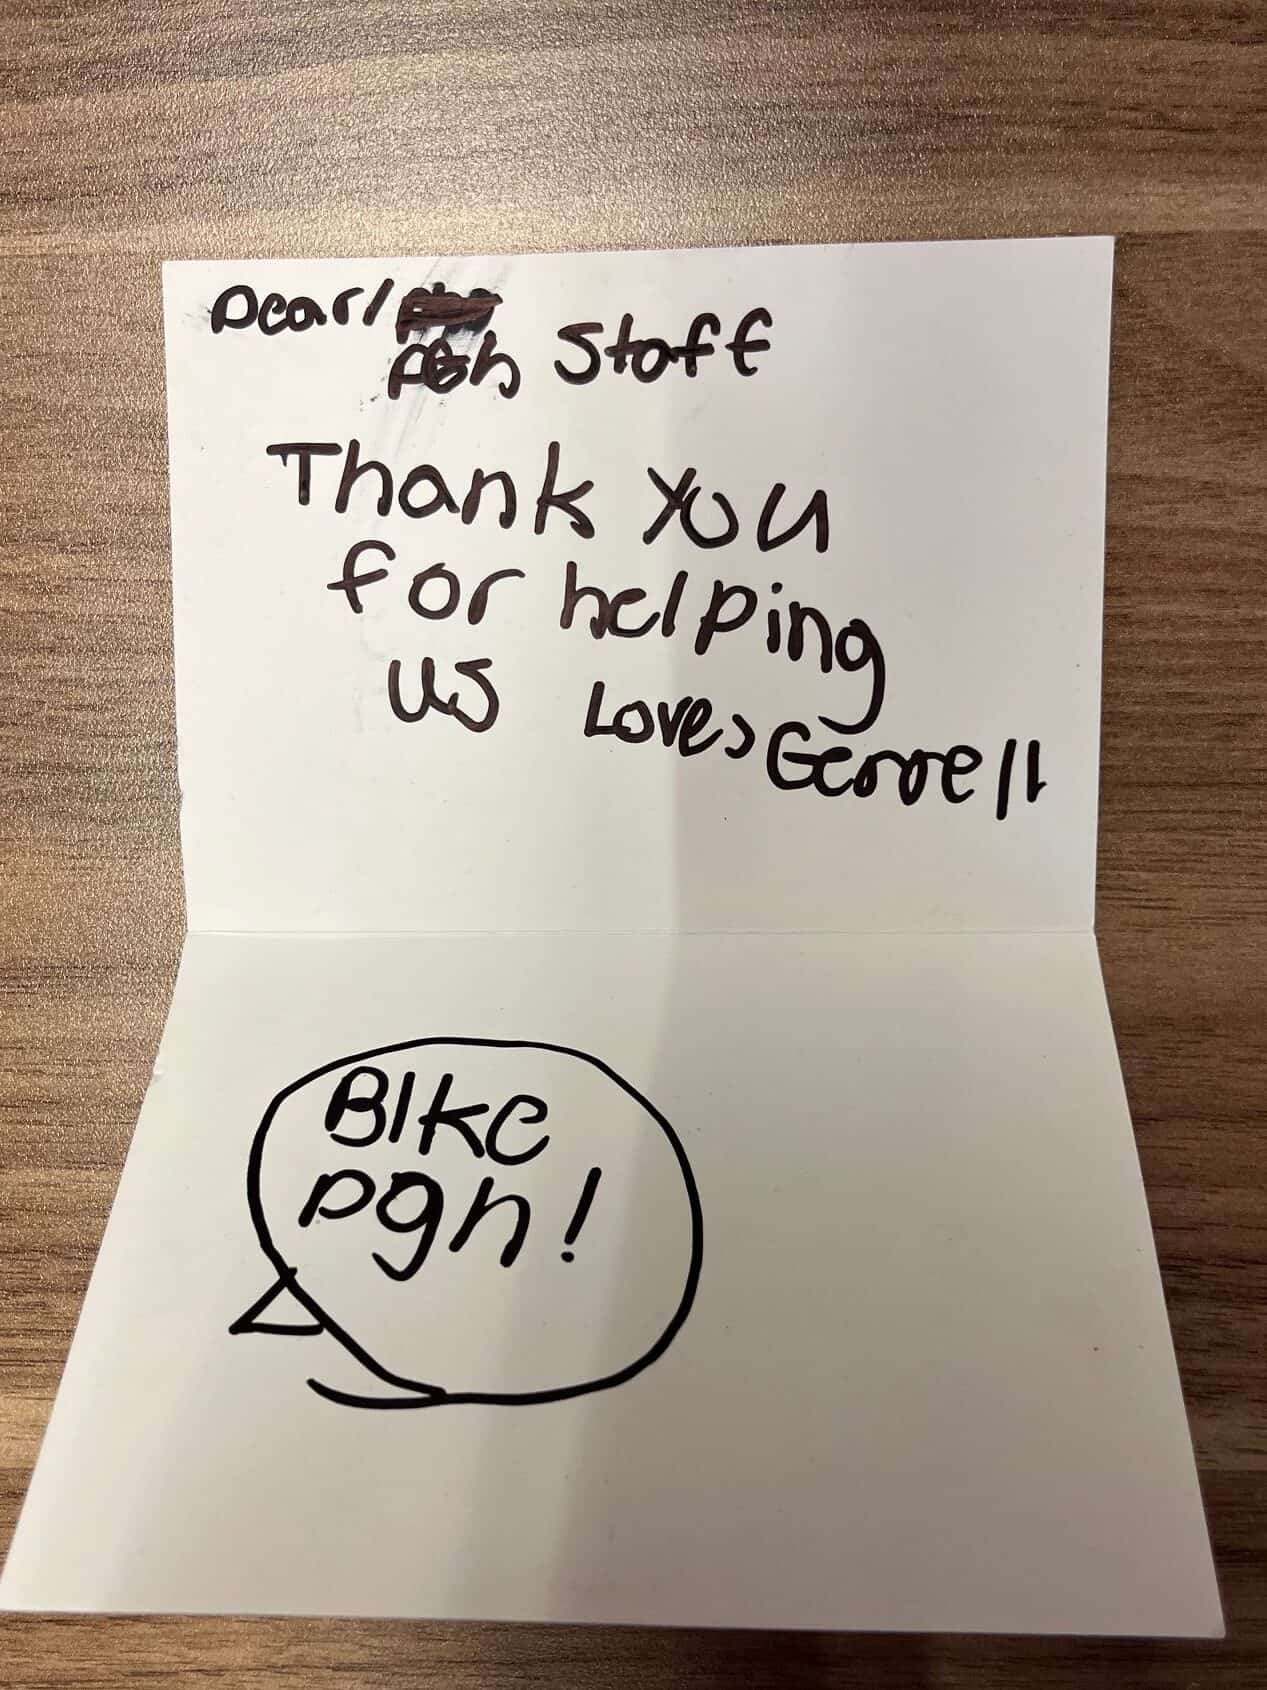 Dear
PGh Staff
Thank you
for helping
us Loves Gerrell
BIke
pgh!